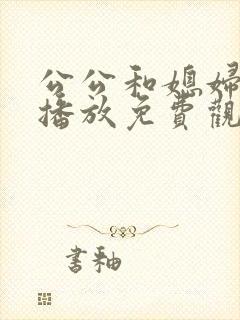 公公和媳婦
播放免費觀
書釉